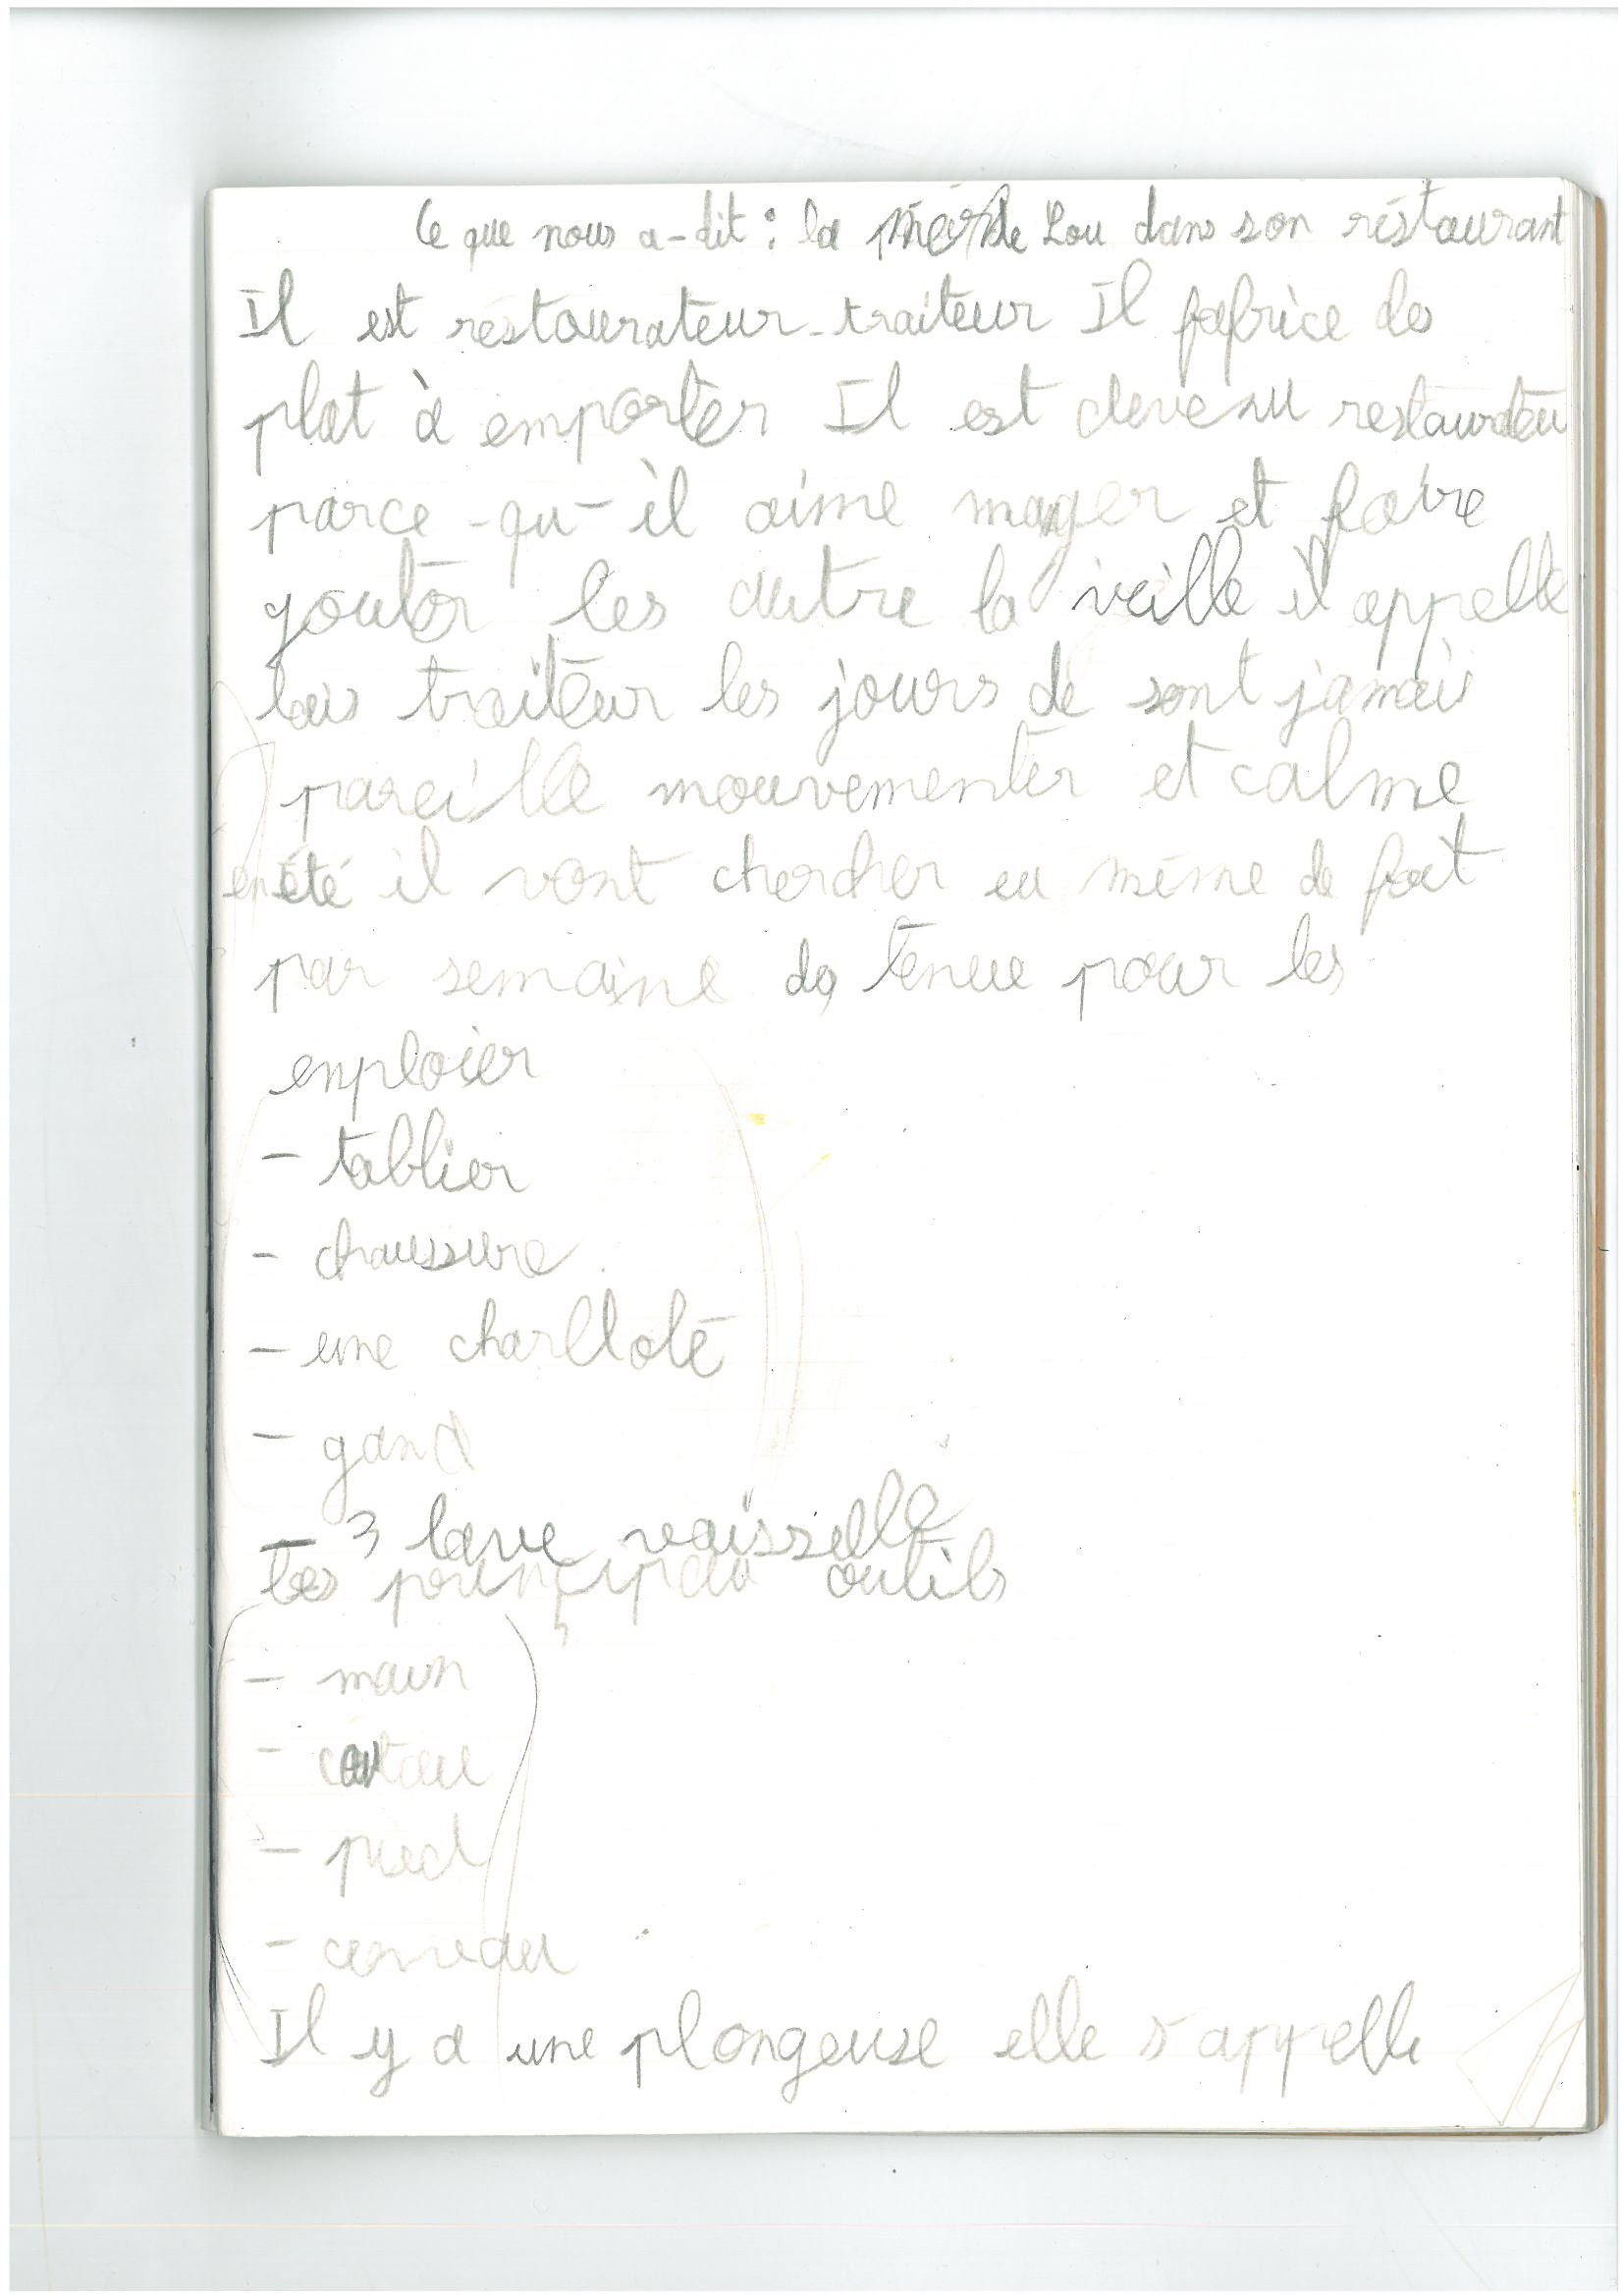 Ce que nous a-dit : la mère de Lou dans son réstaurant
Il est réstourateur-traiteur Il fabrice des
plat à emporter Il est devenu restaurateu
parce-qu-il aime manger et faire
gouter les autre la veille il appelle
traiteur les jours de sont jamais
pareille mouvementer et calme
en été il vont chercher même de
par semaine des tenue pour les
emploier
- tablier
- chaussure
- une charllote
- gand
- 3 lave vaisselle
les outils
- main
-
- pied
-
Il y a une plongeuse elle s'appelle